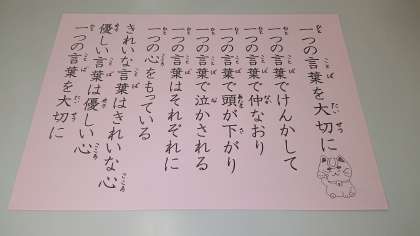 一つの言葉を大切に
一つの言葉でけんかして
一つの言葉で仲なおり
一つの言葉で頭が下がり
一つの言葉で泣かされる
一つの言葉はそれぞれに
一つの心をもっている
きれいな言葉はきれいな心
優しい言葉は優しい心
一つの言葉を大切に